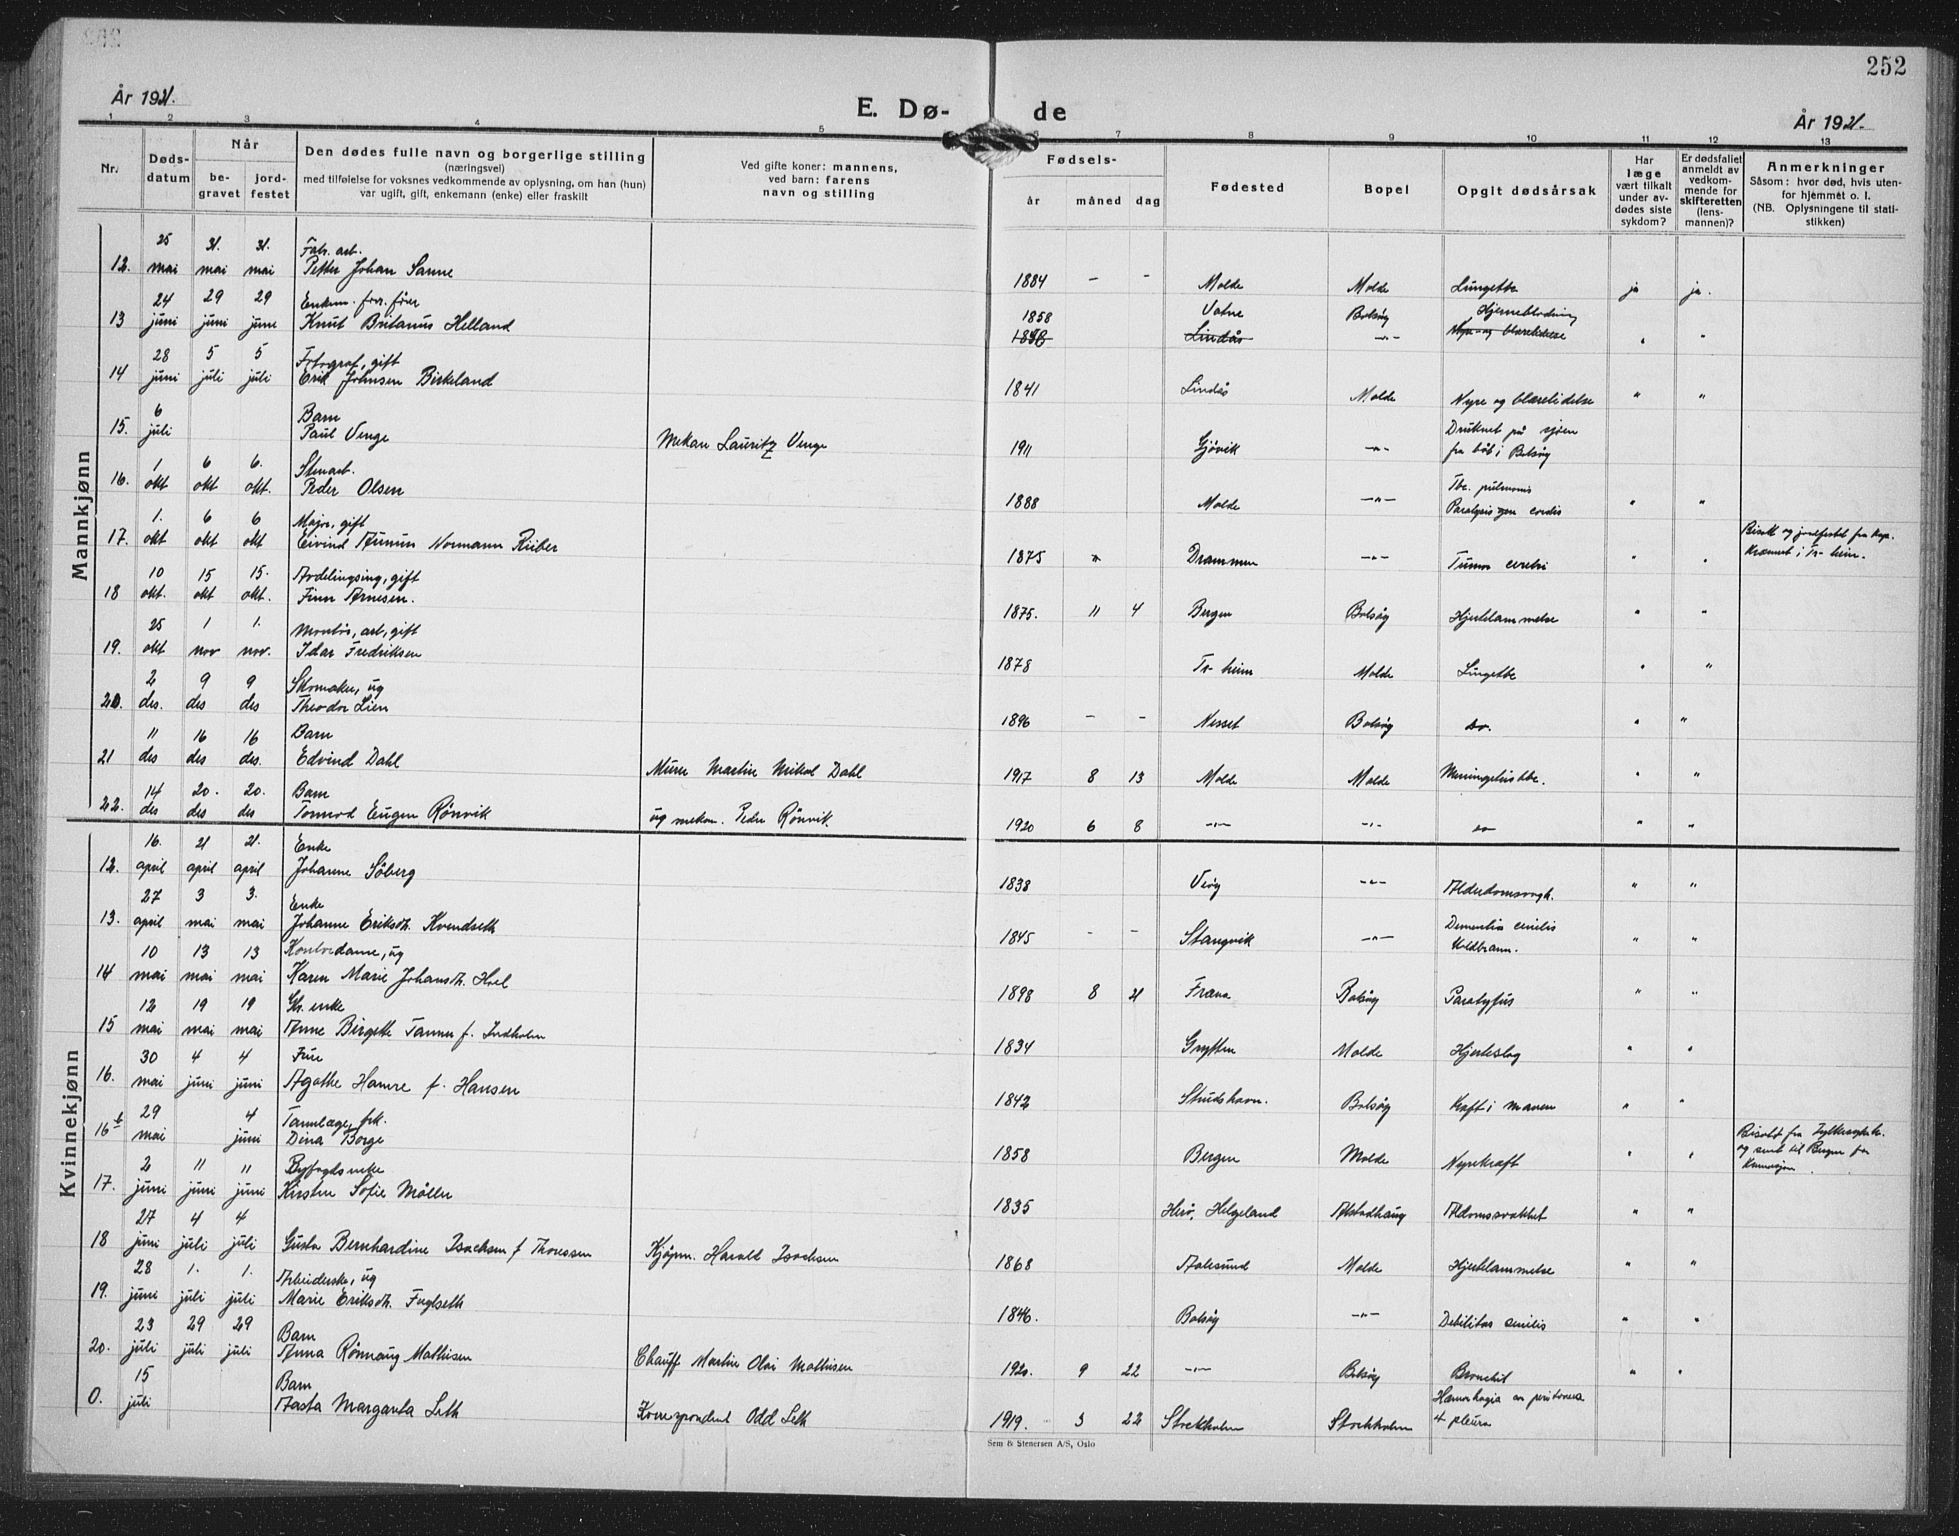 252
År 1921.
E. Dø-
de
År 1921.
1 2 3 4 5 6 7 8 9 10 11 12 13
Nr.
Døds-
datum
Når
be-
gravet
jord-
festet
Den dødes fulle navn og borgerlige stilling
(næringsvei)
med tilføielse for voksnes vedkommende av oplysning, om han (hun)
var ugift, gift, enkemann (enke) eller fraskilt
Ved gifte koner: mannens,
ved barn: farens
navn og stilling
Fødsels-
år måned dag
Fødested
Bopel
Opgit dødsårsak
Har
læge
vært tilkalt
under av-
dødes siste
sykdom?
Er dødsfallet
anmeldt av
vedkom-
mende for
skifteretten
(lens-
mannen)?
Anmerkninger
Såsom: hvor død, hvis uten-
for hjemmet o. l.
(NB. Oplysningene til stati-
stikken)
Mannkjønn
25 31. 31. Fabr. arb.
12. mai mai mai Petter Johan Sanne 1884 - - Molde Molde Lungetbc ja ja.
24 29 29 Enkem. forr.
13 juni juni june Knut Britanus Helland 1858 Vatne Bolsøy Hjerneblødning
1848 Lindås -"- Nyre og blærelidelse " "
28 5 5 Fotograf, gift
14 juni juli juli Erik Johnsen Birkeland 1841 Lindås Molde Nyre og blærelidelse " "
6 Barn
15. juli Paul Venge Mekan Lauritz Venge 1911 Gjøvik -"- Druknet på sjøen
fra båt i Bolsøy
1 6 6. Stenarb.
16. okt okt okt. Peder Olsen 1888 Molde -"- Tbc. pulmonis
Paralysis cordis " "
1. 6 6 Major, gift
17. okt okt okt Eivind Normann Riiber 1875 Drammen -"- Tumor cerebri " "
Bisatt og jordfestet fra kap.
Kremert i Tr-heim.
10 15 15. Avdelingsing, gift
18 okt. okt okt. Finn Arnesen. 1875. 11 4 Bergen Bolsøy Hjertelammelse " "
25 1 1. Montør, arb, gift
19. okt nov nov. Idar Fredriksen 1878 Tr-heim Molde Lungetbc " "
2 9 9 Skomaker, ug
20. des. des des Theodor Lien 1896 - - Nesset Bolsøy do. " "
11 16 16 Barn
21 des des des. Edvind Dahl Murer Martin Mikal Dahl 1917 8 13 Molde Molde Meningittbc. " "
14 20. 20. Barn
22. des des des Tormod Eugen Rønvik ug mekan. Peder Rønvik. 1920 6 8 -"- -"- do " "
Kvinnekjønn
16. 21 21. Enke
12. april april april Johanne Søberg 1838 Veøy -"- Alderdomssvagh. " "
27 3 3. Enke
13. april mai mai Johanne Eriksdt. Kvendseth 1845 - - Stangvik -"- Dementia cenilis
Koldbrann. " "
10 13 13 Kontordame, ug
14 mai mai mai Karen Marie Johansdt. Hoel 1898 8 21 Fræna Bolsøy Paratyfus " "
12 19 19 enke
15 mai mai mai Anne Birgitte f. Indholm 1834 Grytten Molde Hjerteslag " "
30 4 4 Frue
16. mai juni juni Agathe Hamre f. Hansen 1842 Studshavn. Bolsøy Kræft i maven " "
29 4 Tannlæge, frk.
16 b mai juni Dina Børge 1858 Bergen Molde Nyrekræft " "
Bisatt fra Fylkessykeh.
og sendt til Bergen for
Kremasjon
2 11 11 Byfogdsenke
17. juni juni juni Kirsten Sofie Møller 1835 Herø, Helgeland Alstadhaug Aldomssvakhet " "
27 4 4
18 juni juli juli Gusta Bernhardine Isachsen f Thoressen Kjøpm. Harald Isachsen 1868 Aalesund Molde Hjertelammelse " "
28 1. 1. Arbeiderske, ug
19. juni juli juli Marie Eriksdt. Fuglseth 1846. Bolsøy -"- Debilitas senilis " "
23 29 29 Barn
20. juli juli juli Anna Rønnaug Mathisen Chauff Martin Olai Mathisen 1920. 9 22 -"- Bolsøy Bronchit " "
15 Barn
0. juli Aasta Margareta Leth Korrespondent Odd Leth 1919. 3 22 Stockholm Stockholm Hæmorhagia peritonera
+ pleura
Sem & Stenersen A/S, Oslo